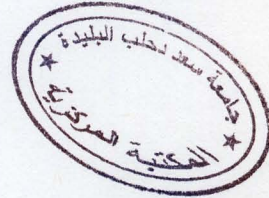 جامعة سعد دحلب البليدة
المكتبة المركزية